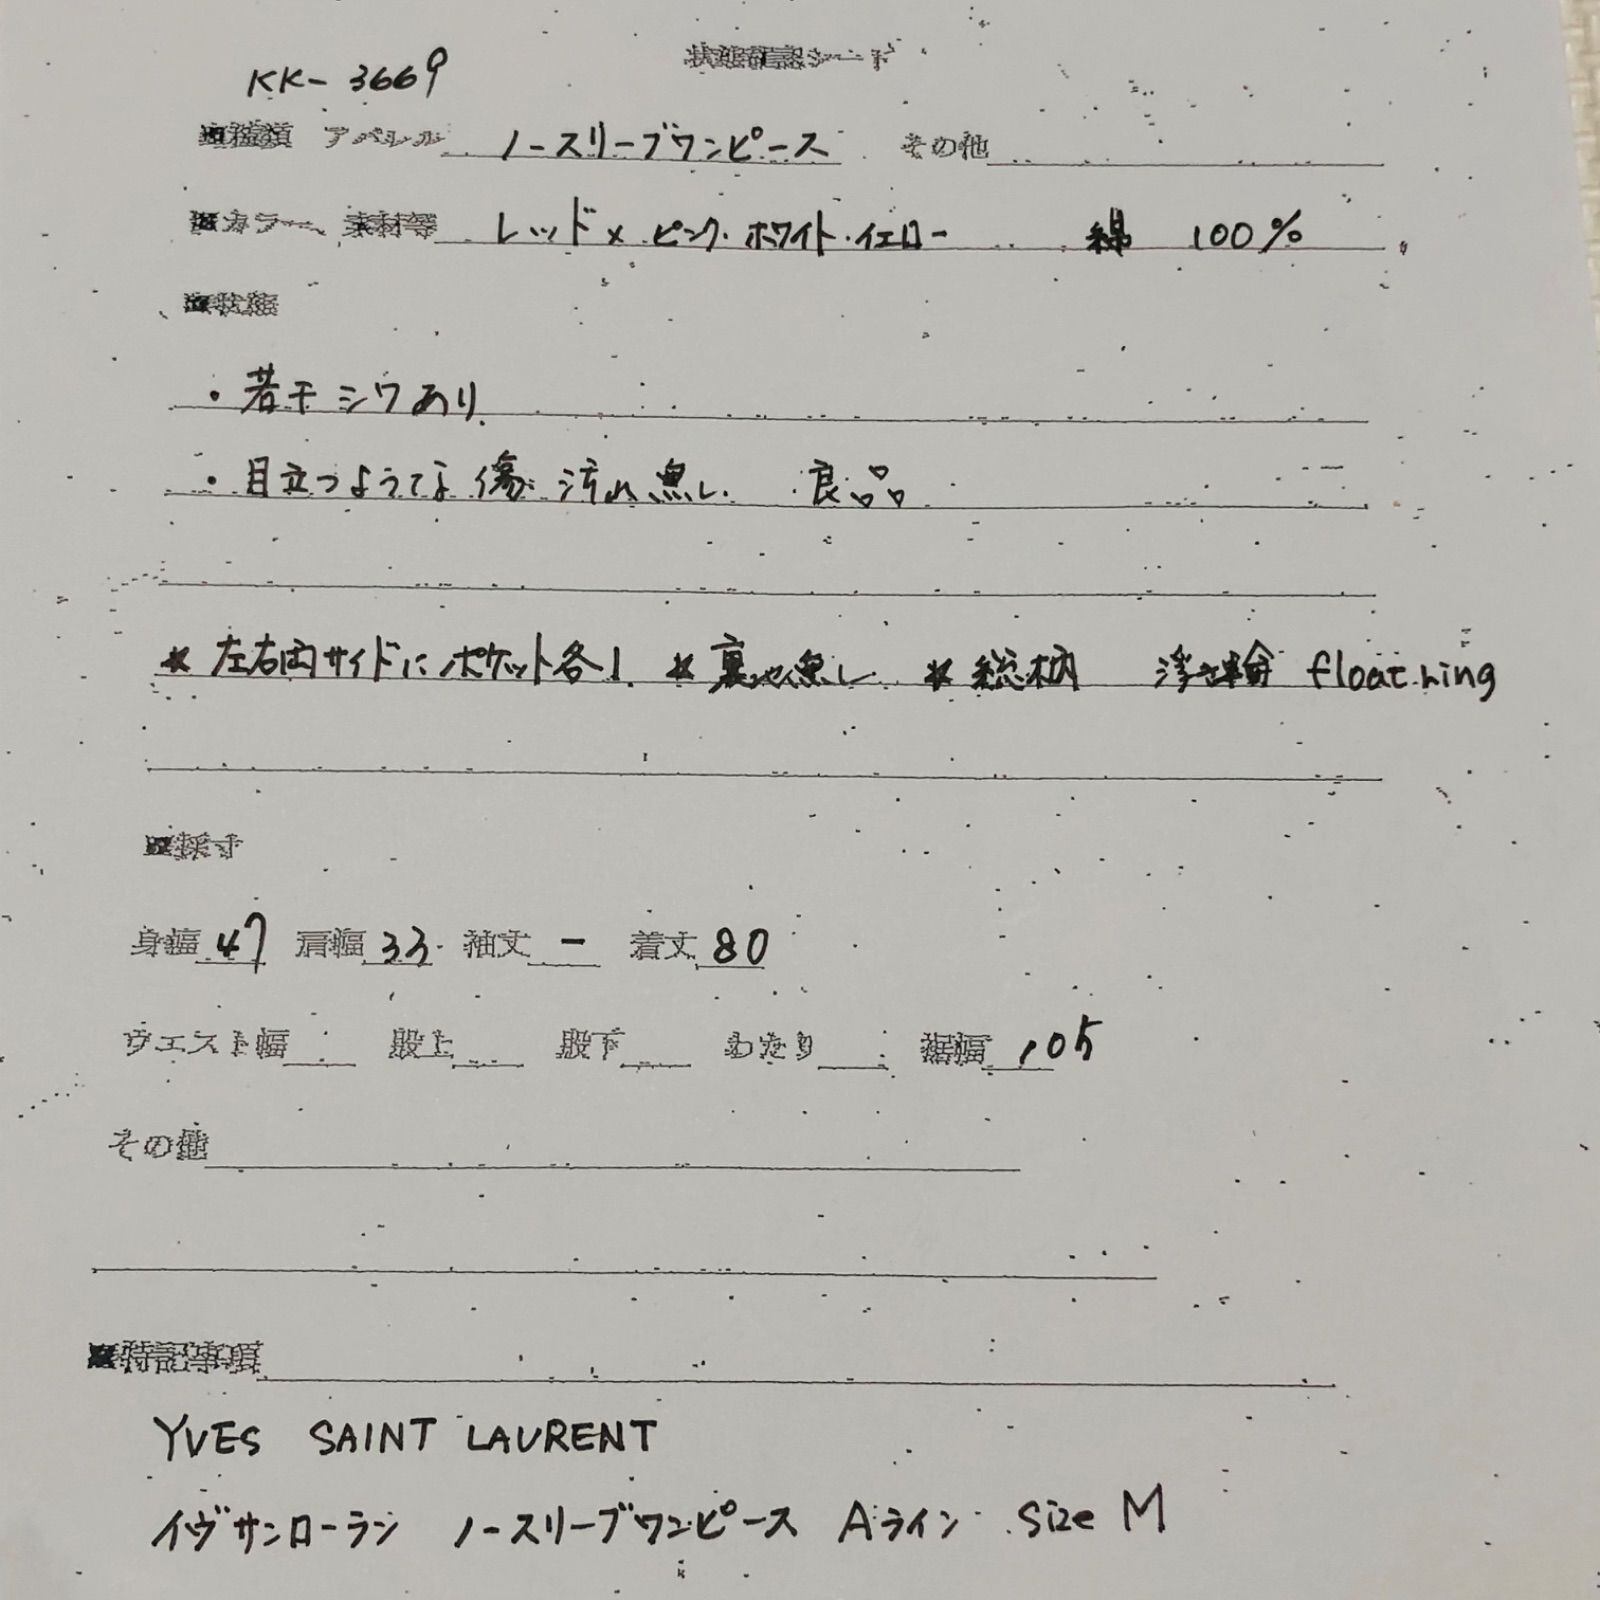 状態確認シート
KK-3669
■種類 アパレル ノースリーブワンピース その他
■カラー、素材等 レッド×ピンク・ホワイト・イエロー 綿 100%
■状態
・若干シワあり
・目立つような傷汚れ無し 良品
* 左右両サイドにポケット各1 * 裏地無し * 総柄 浮き輪 float ring
■採寸
身幅 47 肩幅 33 袖丈 ー 着丈 80
ウエスト幅 股上 股下 わたり 裾幅 105
その他
■特記事項
YVES SAINT LAURENT
イヴサンローラン ノースリーブワンピース Aライン size M